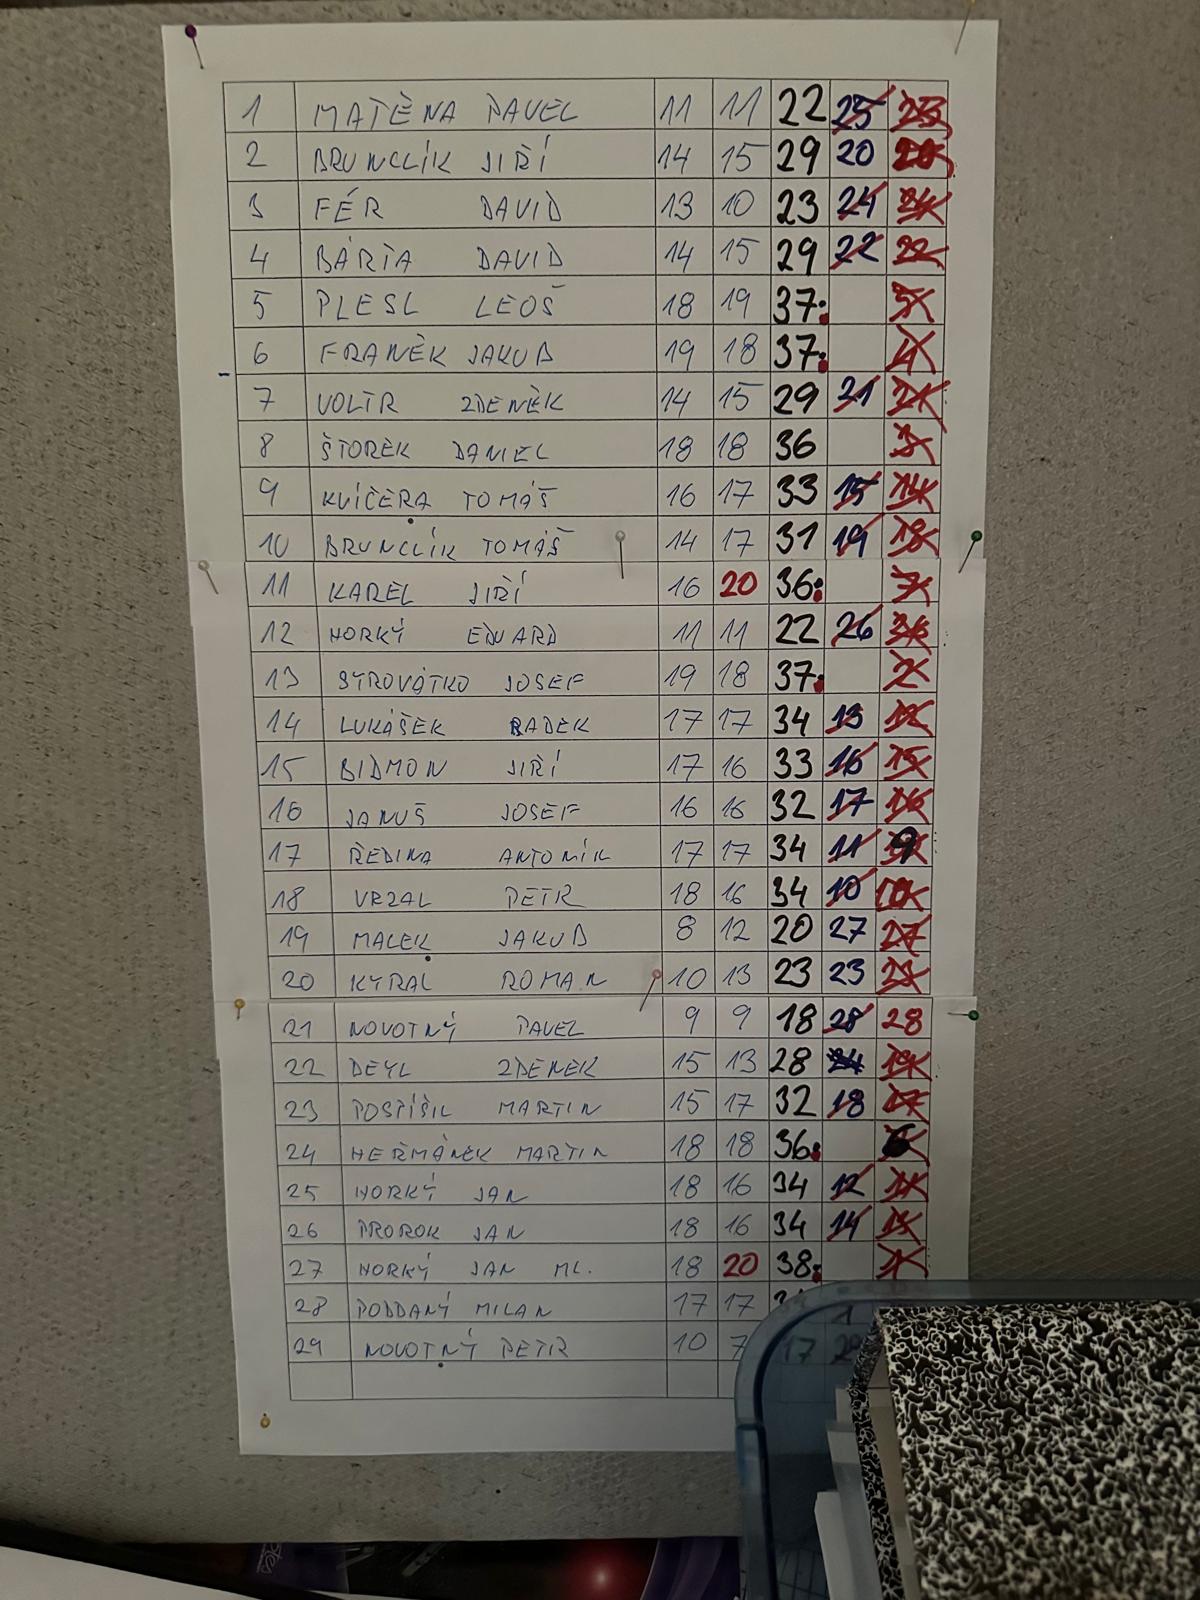 1 MATĚNA PAVEL 11 11 22 25
2 BRUNCLÍK JIŘÍ 14 15 29 20
3 FÉR DAVID 13 10 23 24 24
4 BÁRTA DAVID 14 15 29 22 22
5 PLESL LEOŠ 18 19 37: 5
6 FRANĚK JAKUB 19 18 37: 4
7 VOLTR ZDENĚK 14 15 29 21 21
8 ŠTOREK DANIEL 18 18 36
9 KVÍČERA TOMÁŠ 16 17 33 15 14
10 BRUNCLÍK TOMÁŠ 14 17 31 19 18
11 KAREL JIŘÍ 16 20 36: 7
12 HORKÝ EDUARD 11 11 22 26
13 SYROVÁTKO JOSEF 19 18 37: 2
14 LUKÁŠEK RADEK 17 17 34 13 12
15 BIDMON JIŘÍ 17 16 33 16 15
16 JANUŠ JOSEF 16 16 32 17 16
17 ŘEDINA ANTONÍK 17 17 34 11 9
18 VRZAL PETR 18 16 34 10 10
19 MALEK JAKUB 8 12 20 27 27
20 KYRAL ROMAN 10 13 23 23 23
21 NOVOTNÝ PAVEL 9 9 18 28 28
22 DEYL ZDENEK 15 13 28 24 19
23 POSPÍŠIL MARTIN 15 17 32 18 17
24 HEŘMÁNEK MARTIN 18 18 36: 6
25 HORKÝ JAN 18 16 34 12 11
26 PROROK JAN 18 16 34 14 13
27 HORKÝ JAN ML. 18 20 38: 1
28 PODDANÝ MILAN 17 17
29 NOVOTNÝ PETR 10 7 17